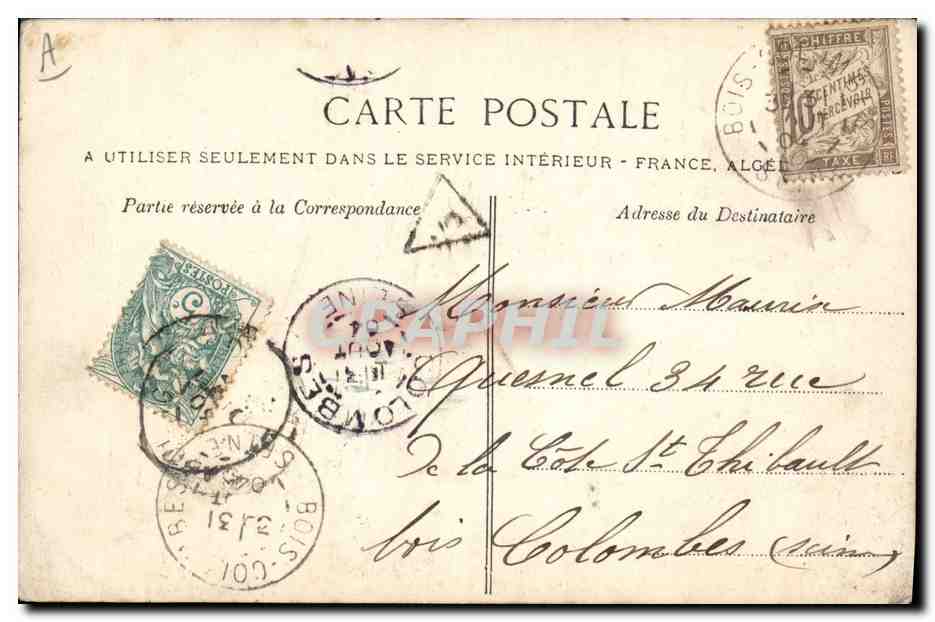 A
CARTE POSTALE
A UTILISER SEULEMENT DANS LE SERVICE INTÉRIEUR - FRANCE, ALGÉ
Partie réservée à la Correspondance
Adresse du Destinataire
CHIFFRE
CENTIMES
10 À PERCEVOIR
POSTES
TAXE
RF
BOIS-
POSTES
5
COLOMBES
SEINE
31
AOUT
04
BOIS-COLOMBES
31
04
CPAPHIL
Monsieur Maurice
Quesnel 34 rue
de la Côte St Thibault
bois Colombes (seine)